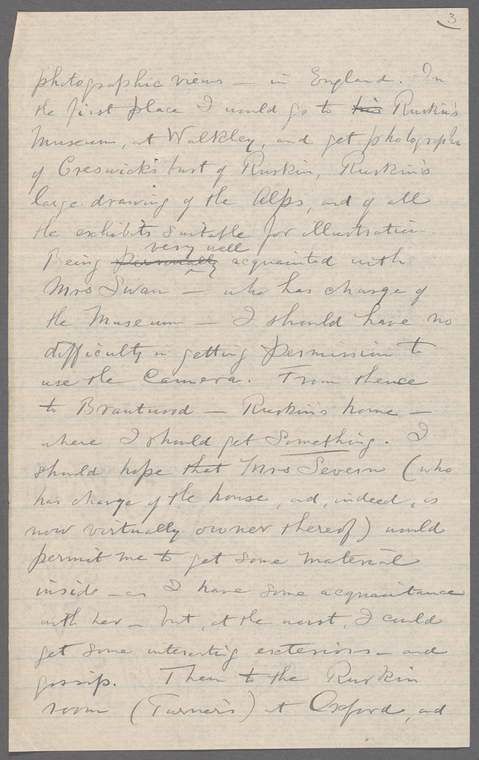 3
photographic views — in England. In
the first place I would go to his Ruskin's
Museum, at Walkley, and get photographs
of Creswick's bust of Ruskin, Ruskin's
large drawing of the Alps, and of all
the exhibits suitable for illustration.
very well
Being personally acquainted with
Mrs Swan — who has charge of
the Museum — I should have no
difficulty in getting permission to
use the Camera. From thence
to Brantwood — Ruskin's home —
where I should get Something. I
should hope that Mrs Severn (who
has charge of the house, and, indeed, is
now virtually owner thereof) would
permit me to get some material
inside — as I have some acquaintance
with her — but, at the worst, I could
get some interesting exteriors — and
gossip. Then to the Ruskin
room (Turner's) at Oxford, and